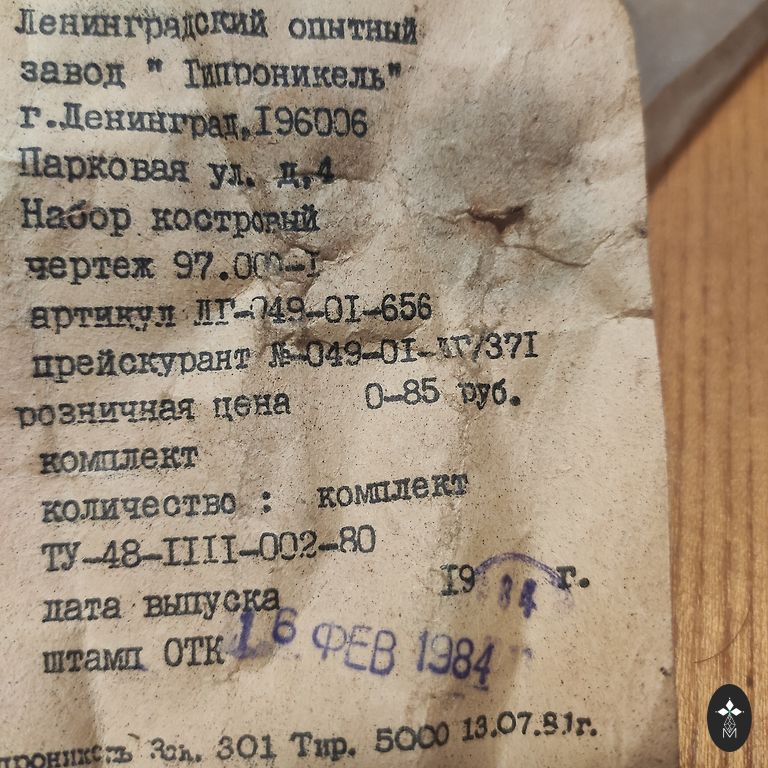 Ленинградский опытный
завод " Гипроникель"
г.Ленинград,I96006
Парковая ул. д,4
Набор костровый
чертеж 97.000-I
артикул ЛГ-049-0I-656
прейскурант №-049-0I-ЛГ/37I
розничная цена 0-85 руб.
комплект
количество : комплект
ТУ-48-IIII-002-80
дата выпуска 19 84 г.
штамп ОТК 16 ФЕВ 1984
Зак. 301 Тир. 5000 13.07.81г.